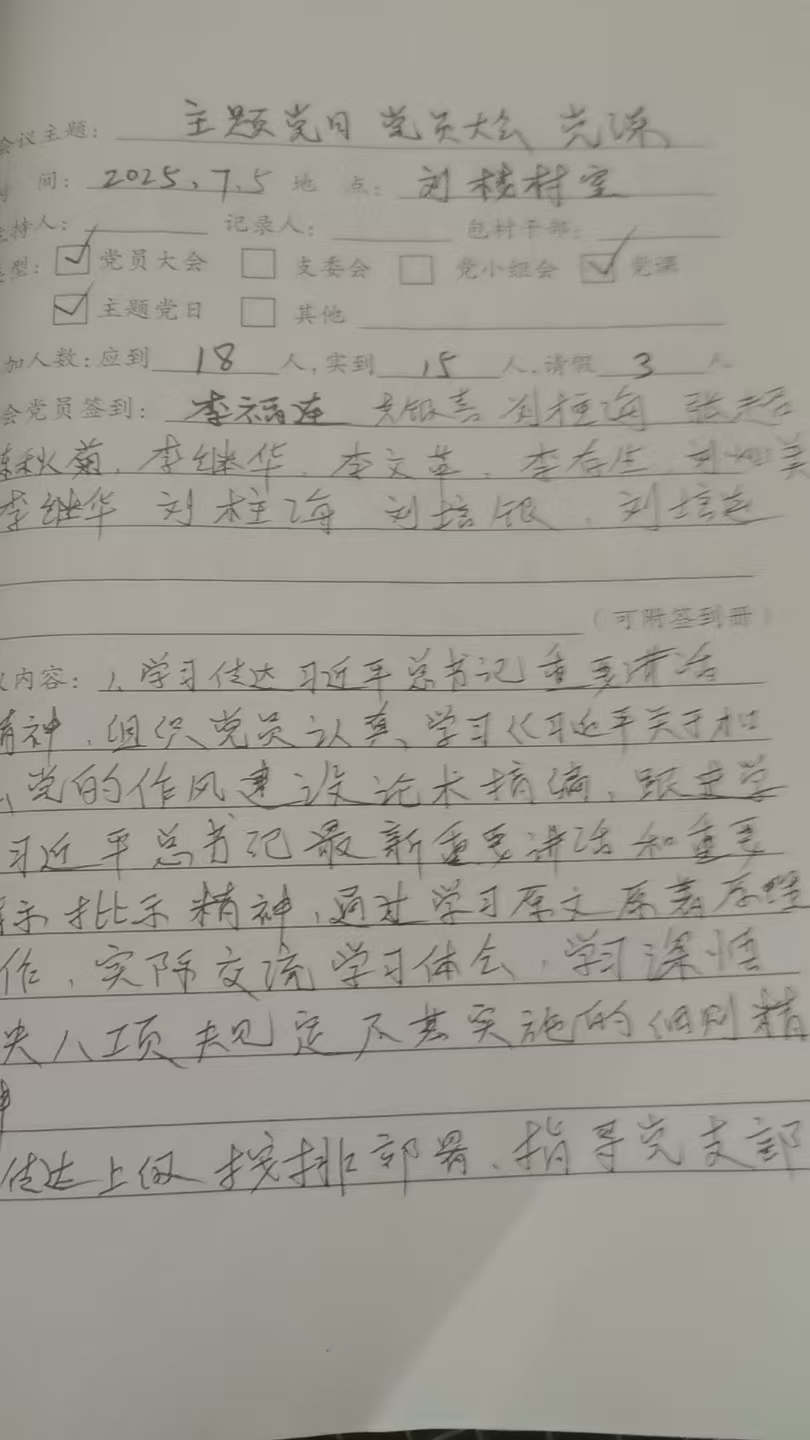 会议主题: 主题党日 党员大会 党课
间: 2025.7.5 地 点: 刘楼村室
持人: 记录人: 包村干部:
型: 党员大会 支委会 党小组会 党课
主题党日 其他
加人数: 应到 18 人, 实到 15 人, 请假 3 人
会党员签到: 李福连 刘柱海
秋菊. 李继华. 李文英. 李存生
李继华 刘柱海 刘培银. 刘培
(可附签到册)
内容: 1、学习传达习近平总书记重要讲话
精神, 组织党员认真学习《习近平关于加
党的作风建设论术摘编, 跟进学
习近平总书记最新重要讲话和重要
示批示精神, 通过学习原文原著原理
作, 实际交流学习体会, 学习深悟
央八项规定及其实施的细则精
神
传达上级按排部署、指导党支部